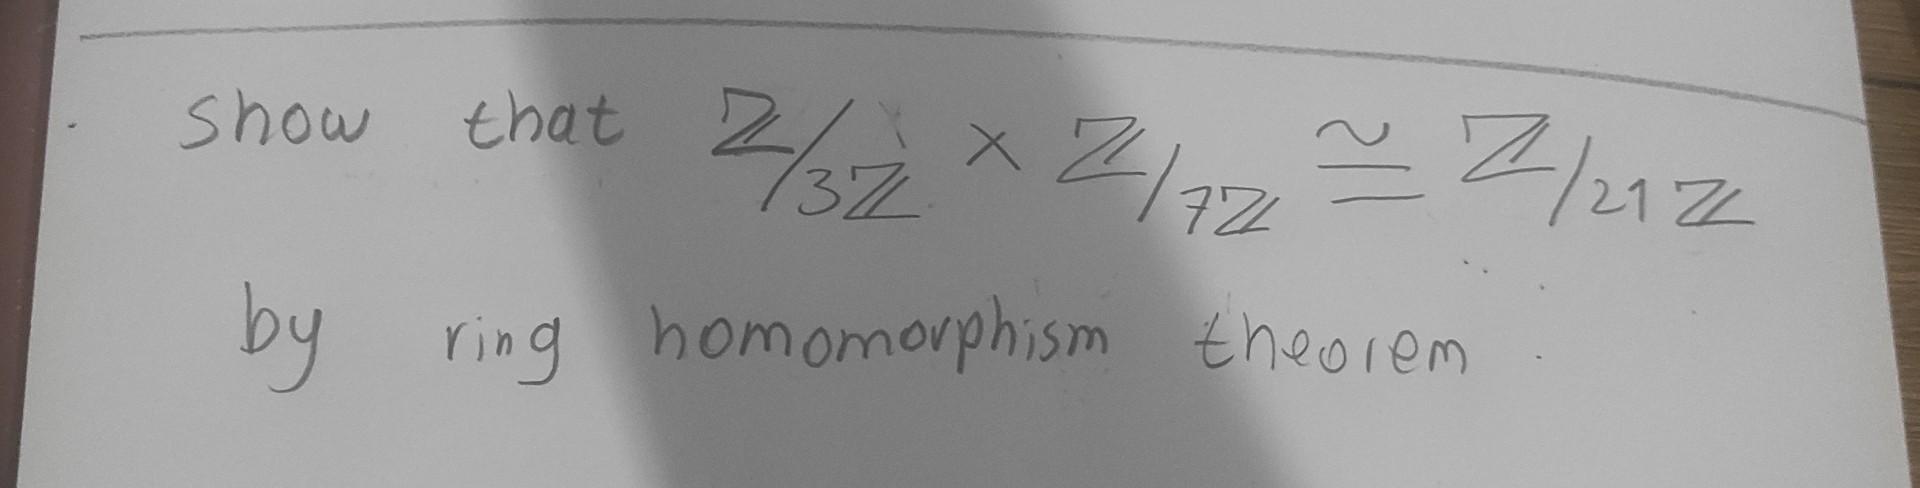 show that ℤ/3ℤ × ℤ/7ℤ ≅ ℤ/21ℤ
by ring homomorphism theorem.